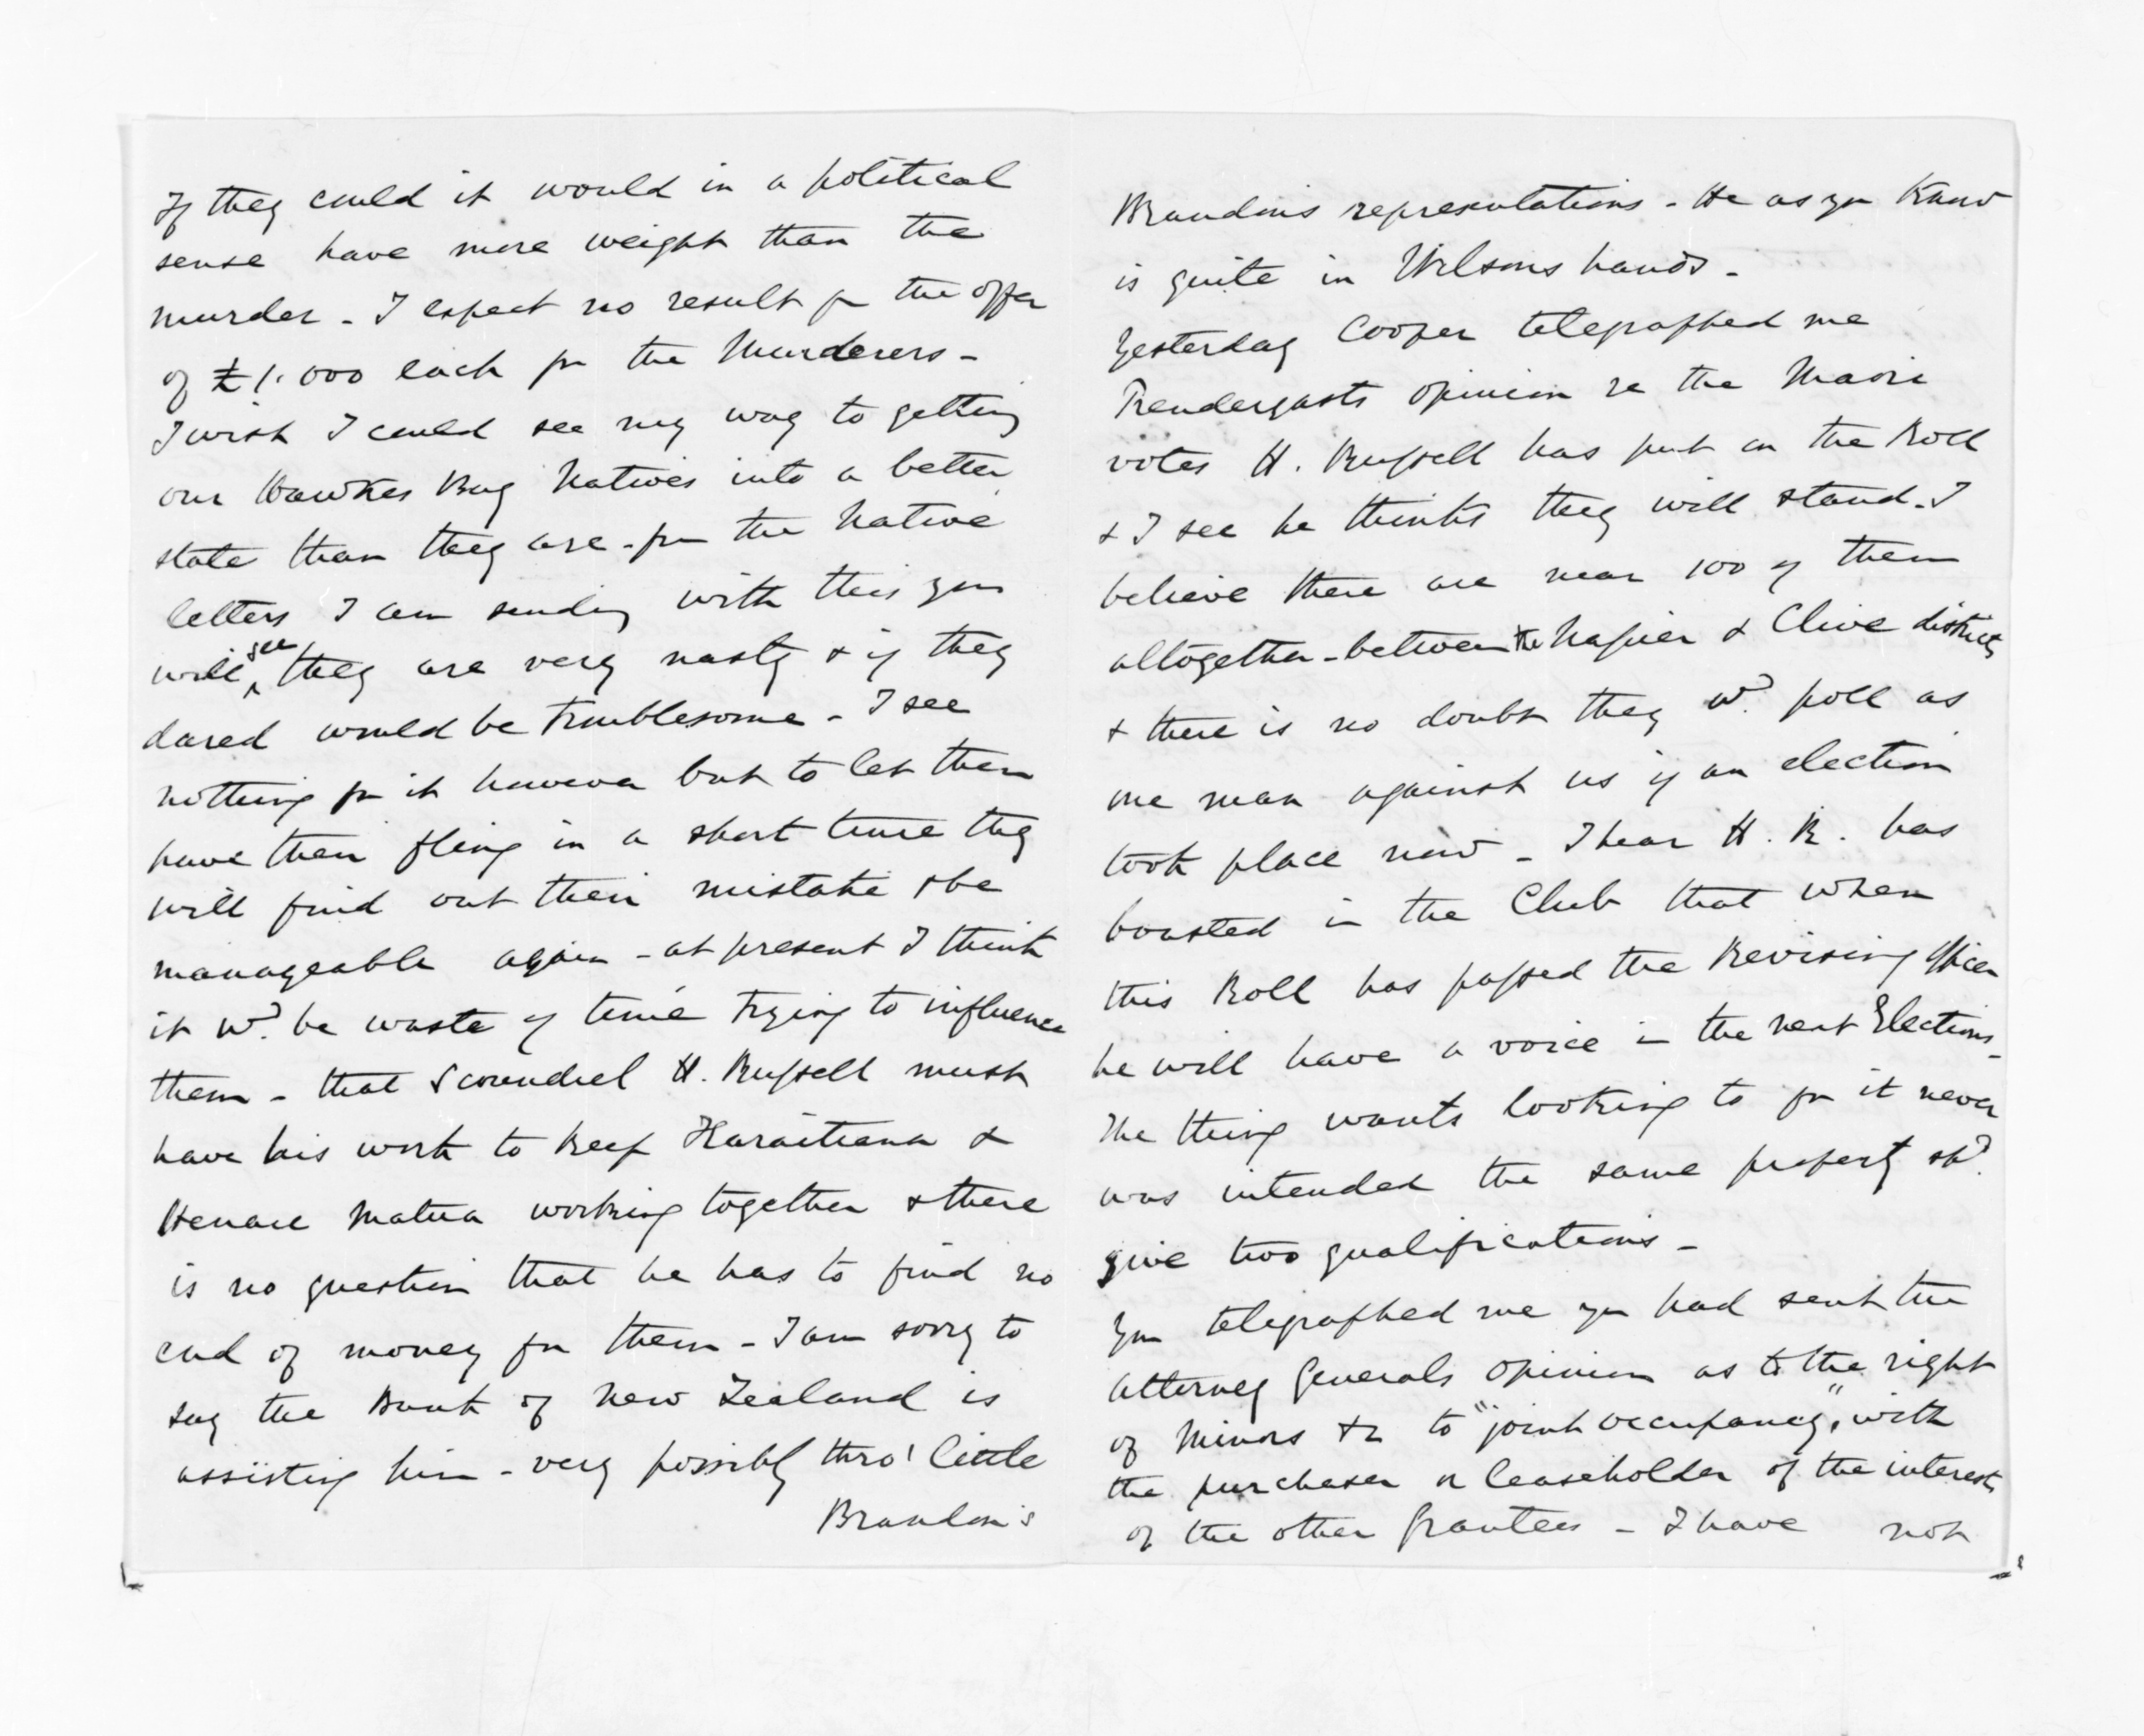 If they could it would in a political
sense have more weight than the
murder - I expect no result fm the offer
of £1.000 each for the Murderers -
I wish I could see my way to getting
our Hawkes Bay Natives into a better
state than they are - fm the Native
letters I am sending with this you
will see they are very nasty & if they
dared would be troublesome - I see
nothing for it however but to let them
have their fling in a short time they
will find out their mistake & be
manageable again - at present I think
it wd. be waste of time trying to influence
them - that Scoundrel H. Russell must
have his work to keep Karaitiana &
Henare Matua working together & there
is no question that he has to find no
end of money for them - I am sorry to
say the Bank of New Zealand is
assisting him - very possibly thro' little
Brandon's
Brandon's representations - He as you know
is quite in Wilsons hands -
Yesterday Cooper telegraphed me
Prendergasts opinion re the Maori
votes H. Russell has put on the Roll
& I see he thinks they will stand - I
believe there are near 100 of them
altogether - between the Napier & Clive districts
& there is no doubt they wd. poll as
one man against us if an election
took place now - I hear H. R. has
boasted in the Club that when
this Roll has passed the Revising Officer
he will have a voice in the next Elections -
The thing wants looking to for it never
was intended the same property shd.
give two qualifications -
You telegraphed me you had sent the
Attorney Generals opinion as to the right
of Minors &c to "joint occupancy", with
the purchaser or leaseholder of the interests
of the other Grantees - I have not